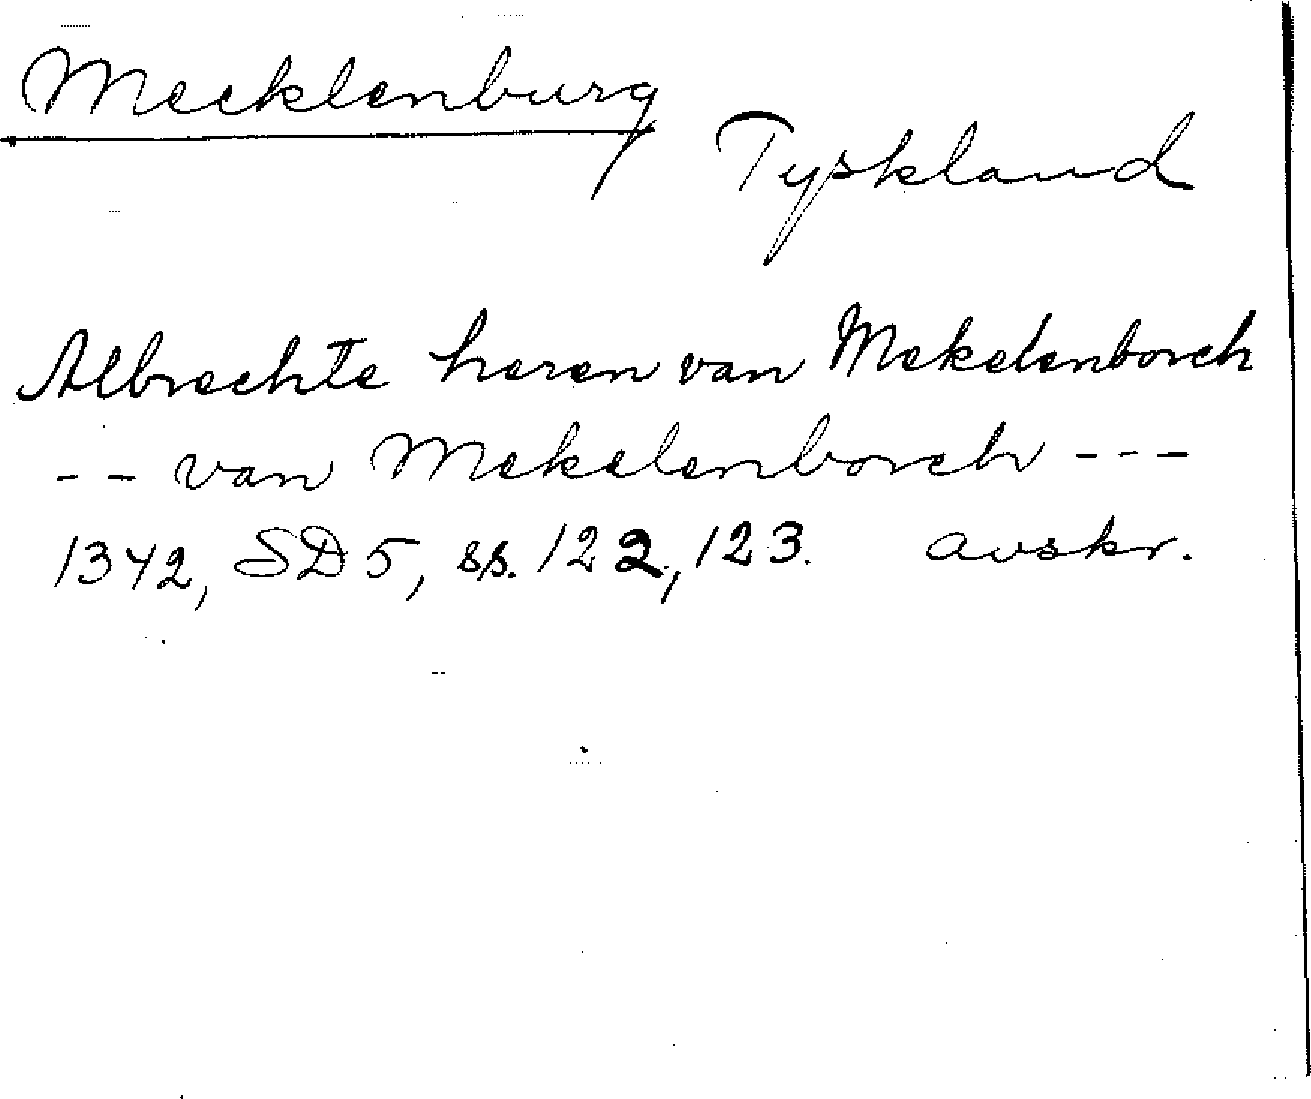 Mecklenburg
Tyskland
Albrechte heren van Mekelenborch
-- van Mekelenborch ---
1342, SD 5, ss. 122, 123. avskr.